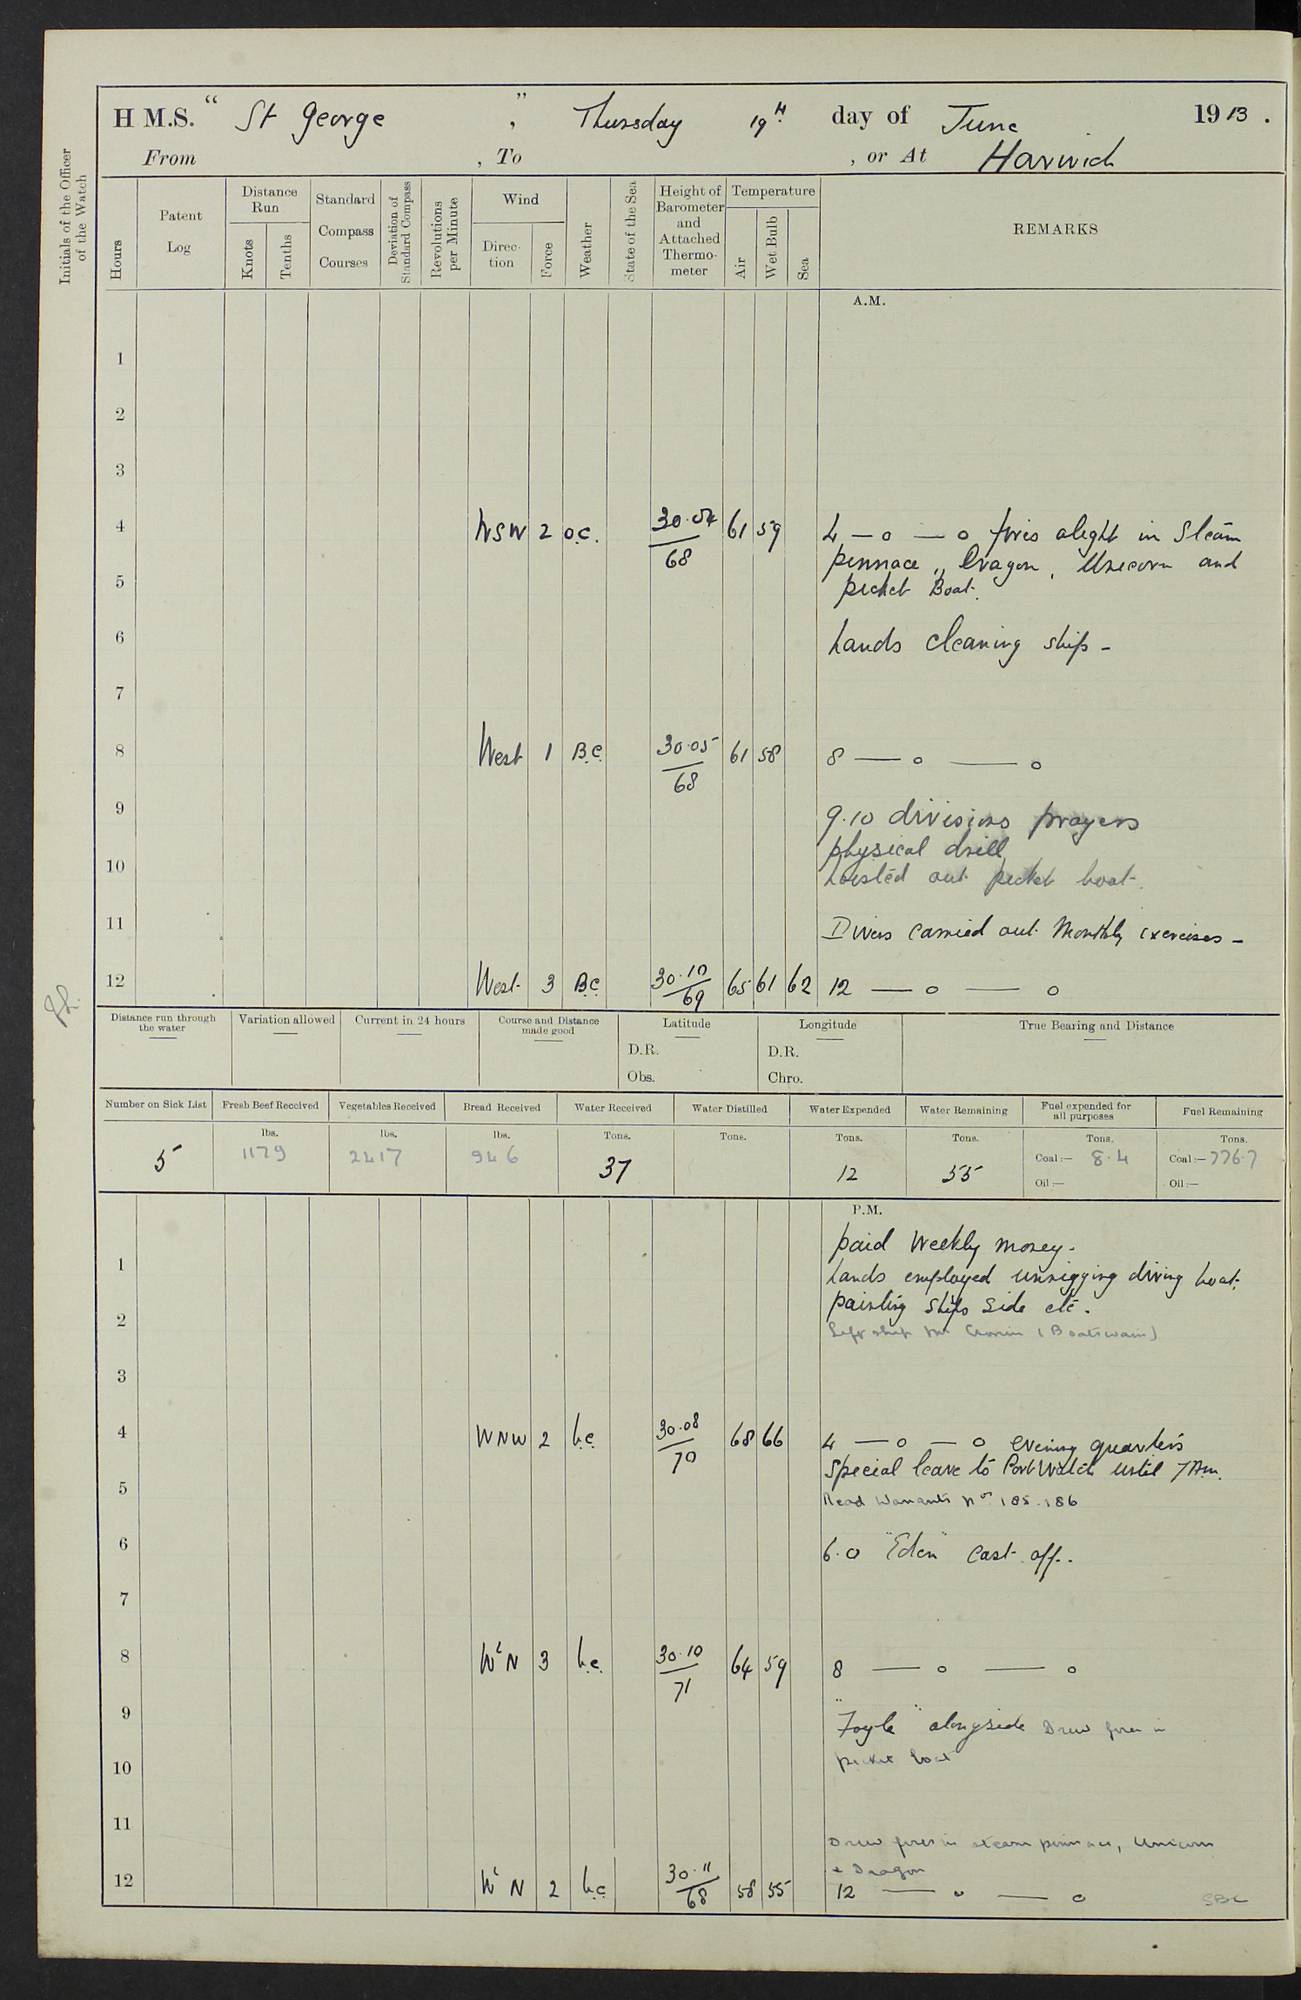 H M.S. "St George", Thursday 19th day of June 1913.
From , To , or At Harwich
Initials of the Officer of the Watch
Hours
Patent Log
Distance Run
Knots
Tenths
Standard Compass Courses
Deviation of Standard Compass
Revolutions per Minute
Wind
Direction
Force
Weather
State of the Sea
Height of Barometer and Attached Thermometer
Temperature
Air
Wet Bulb
Sea
REMARKS
A.M.
1
2
3
4 WSW 2 o.c. 30.04 / 68 61 59 4 — o — o fires alight in Steam
pinnace, Dragon, Unicorn and
5 picket Boat.
6 hands cleaning ship -
7
8 West 1 B.C. 30.05 / 68 61 58 8 — o — o
9 9.10 divisions prayers
physical drill
10 hoisted out picket boat.
11 Divers carried out Monthly exercises -
12 West 3 B.C. 30.10 / 69 65 61 62 12 — o — o
Distance run through the water
Variation allowed
Current in 24 hours
Course and Distance made good
Latitude
D.R.
Obs.
Longitude
D.R.
Chro.
True Bearing and Distance
Number on Sick List
5
Fresh Beef Received
lbs.
1179
Vegetables Received
lbs.
2417
Bread Received
lbs.
946
Water Received
Tons.
37
Water Distilled
Tons.
Water Expended
Tons.
12
Water Remaining
Tons.
55
Fuel expended for all purposes
Tons.
Coal:— 8.4
Oil:—
Fuel Remaining
Tons.
Coal:— 776.7
Oil:—
P.M.
paid Weekly money.
1 hands employed unrigging diving boat.
painting ships side etc.
2 Left ship Mr Cronin (Boatswain)
3
4 WNW 2 b.c. 30.08 / 70 68 66 4 — o — o evening quarters
Special leave to Port Watch until 7 Am.
5 Read Warrants Nos 185.186
6 6.0 "Eden" cast off.
7
8 W'N 3 b.c. 30.10 / 71 64 59 8 — o — o
9 "Foyle" alongside Drew fires in
10 picket boat
11 Drew fires in steam pinnace, Unicorn
+ Dragon
12 W'N 2 b.c 30.11 / 68 58 55 12 — o — o